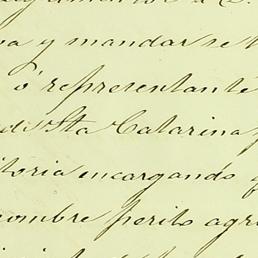 y mandar se
ó representante
de Sta Catarina
itoria encargando
nombre perito agri